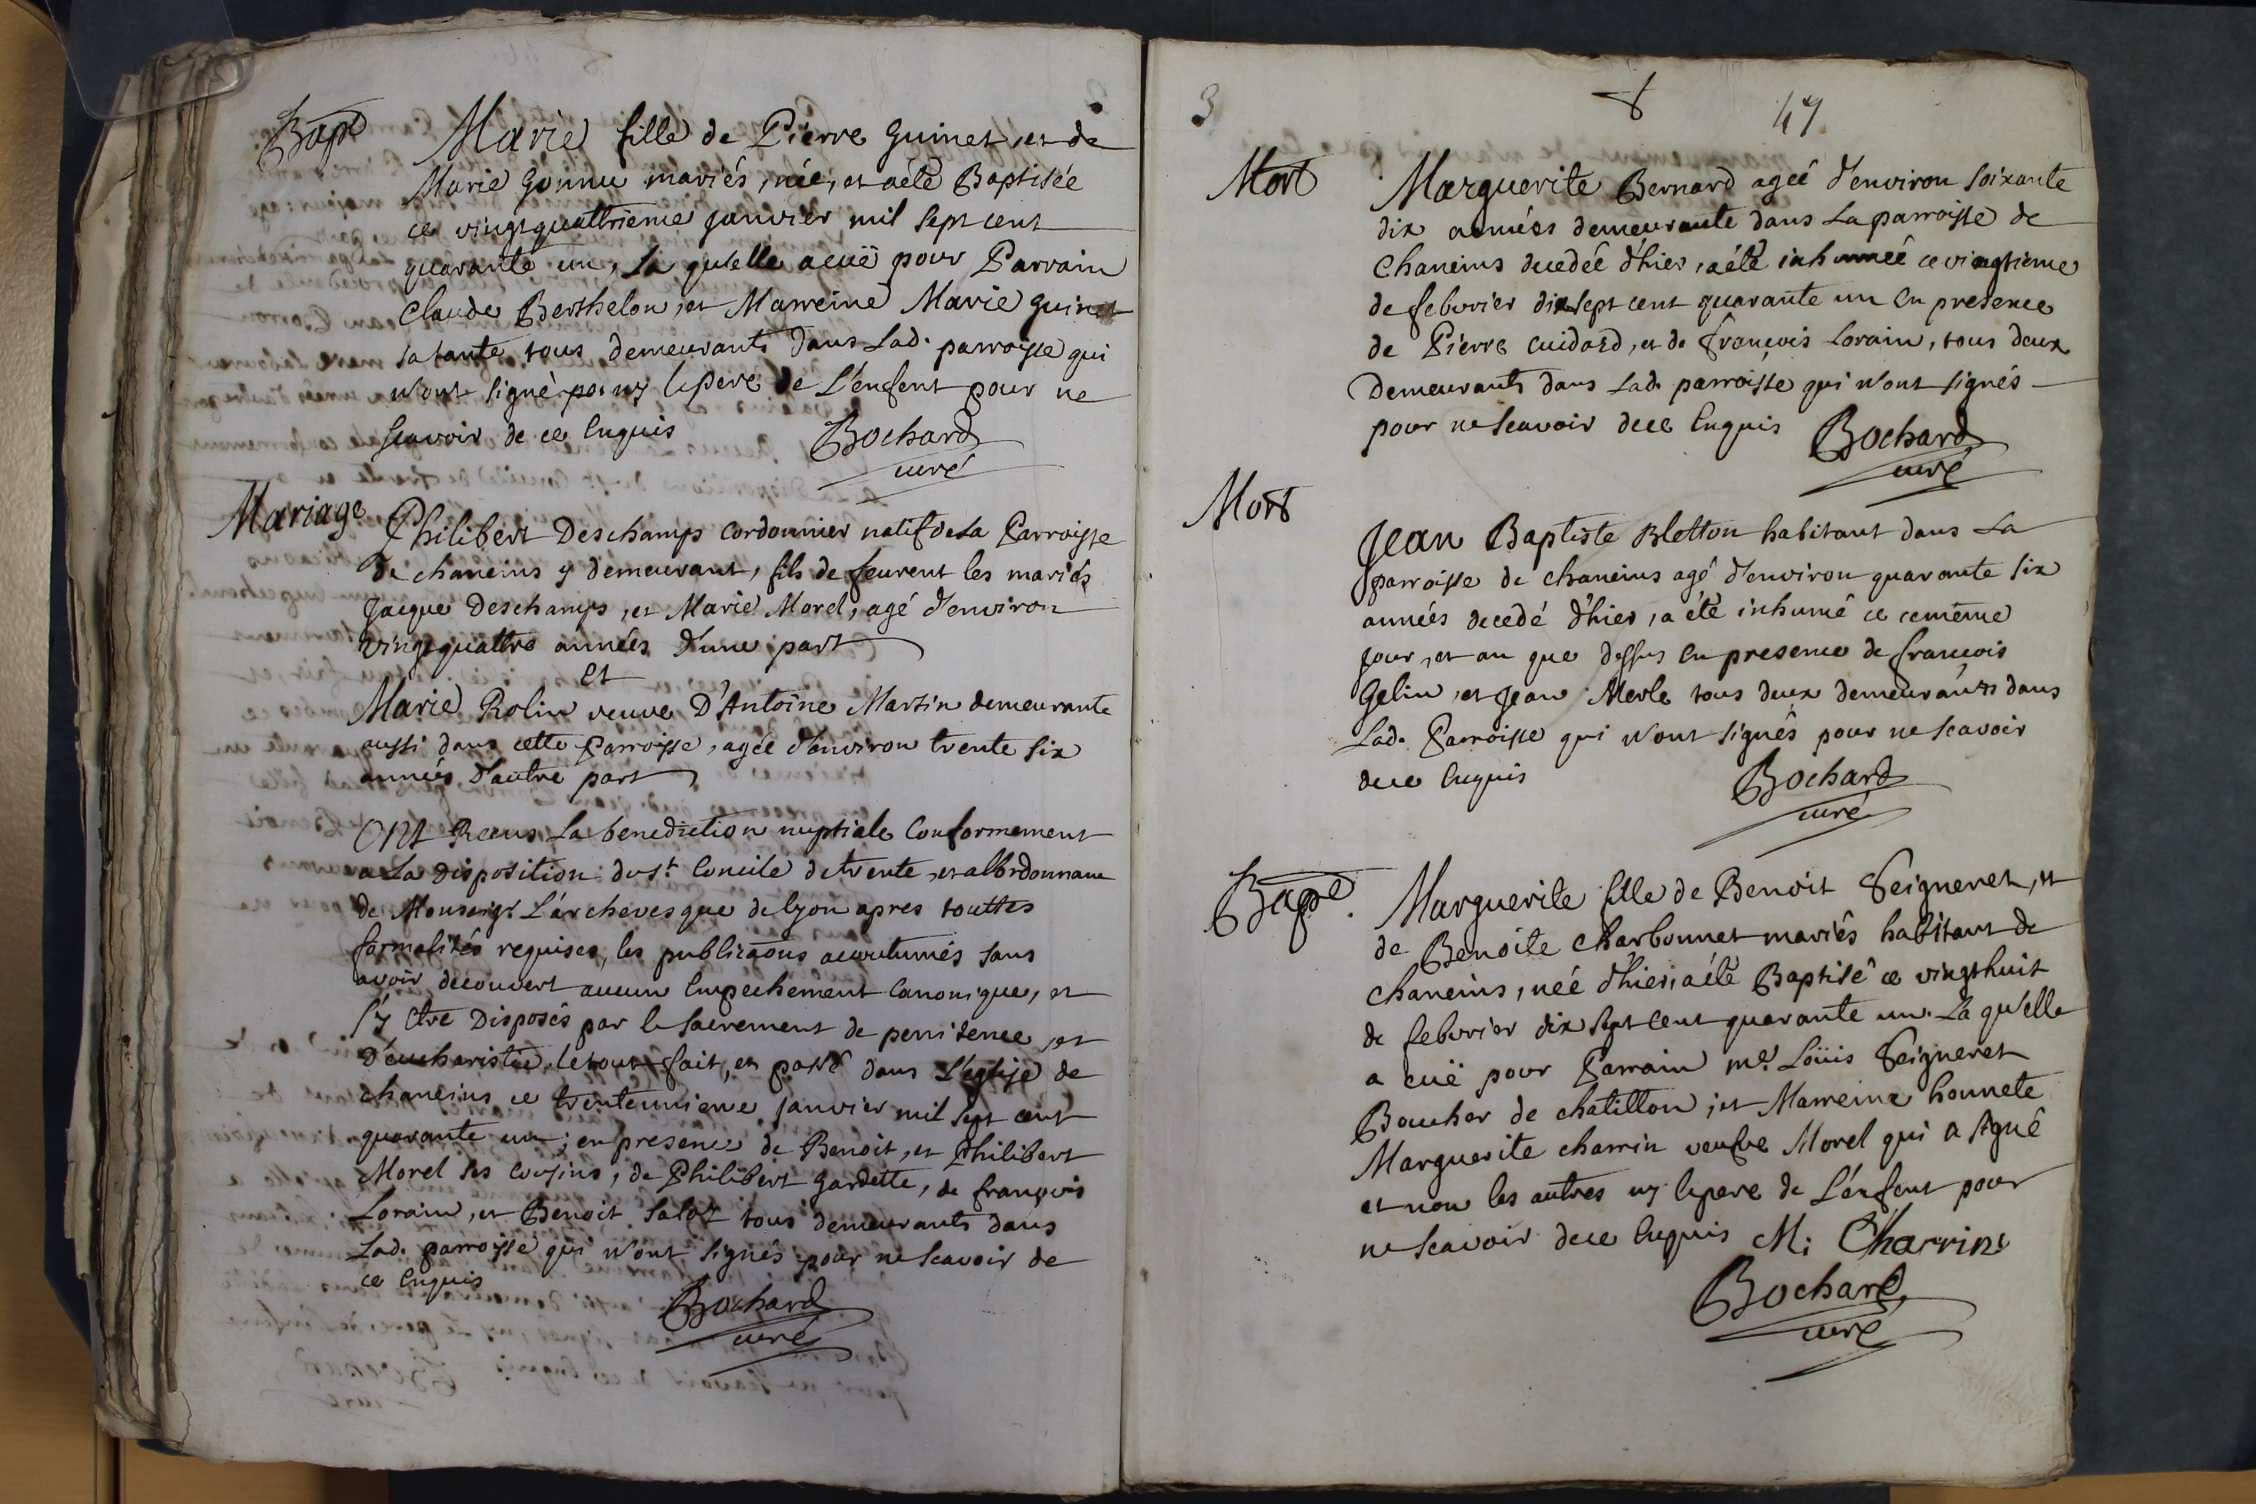 Bapt
Marie fille de Pierre Guinet, et de
Marie Gonnu mariés, née, et aété Baptisée
ce vingtquattrieme janvier mil sept cent
quarante un, La qu'elle aeuë pour Parrain
Claude Berthelon, et Marreine Marie Guinet
sa tante tous demeurants dans Lad. parroisse qui
n'ont signé ny le pere de L'enfent pour ne
scavoir de ce Enquis
Bochard
curé
Mariage
Philibert Deschamps Cordonnier natif de La Parroisse
de chaneins y demeurant, fils de feurent les mariés
Jacque Deschamps, et Marie Morel, agé d'environ
vingtquattre années d'une part
et
Marie Rolin veuve D'Antoine Martin demeurante
aussi dans cette Parroisse, agée d'environ trente six
années d'autre part
ONt Receus La benediction nuptiale Conformement
a La Disposition du St Concile de trente, et alordonnance
de Monseigr L'archevesque de lyon apres touttes
formalités requises, les publicaons accoutumés sans
avoir decouvert aucun Empechement Canonique, et
s'y etre Disposés par le sacrement de penitence, et
D'eucharistie, le tout fait, et passé dans L'eglise de
chaneins ce trenteunieme janvier mil sept cent
quarante un; en presence de Benoit, et Philibert
Morel ses cousins, de Philibert Gardette, de françois
Lorain, et Benoit Salot tous demeurants dans
Lad. parroisse qui n'ont signés pour ne scavoir de
ce Enquis
Bochard
curé
3
8
47
Mort
Marguerite Bernard ageé d'environ soixante
dix années demeurante dans La parroisse de
Chaneins decedée d'hier, aété inhumeé ce vingtieme
de febvrier dixsept cent quarante un En presence
de Pierre Cuidard, et de François Lorain, tous deux
Demeurants dans Lad. parroisse qui n'ont signés
pour ne scavoir dece Enquis
Bochard
curé
Mort
Jean Baptiste Bletton habitant dans La
parroisse de chaneins agé d'environ quarante six
années decedé d'hier, a été inhumé ce cemême
jour, et an que dessus En presence de françois
Gelin, et Jean Merle tous deux demeurants dans
Lad. Parroisse qui n'ont signés pour ne scavoir
dece Enquis
Bochard
curé
Bapt
Marguerite fille de Benoit Seigneret, et
de Benoite Charbonnet mariés habitant de
chaneins, neé d'hier, aété Baptisé ce vingthuit
de febvrier dix sept cent quarante un. La qu'elle
a euë pour Parrain me. Loüis Seigneret
Boucher de chatillon, et Marreine honnete
Marguerite charrin veufve Morel qui a signé
et non les autres ny le pere de L'enfent pour
ne scavoir dece Enquis M: Charrin
Bochard
curé